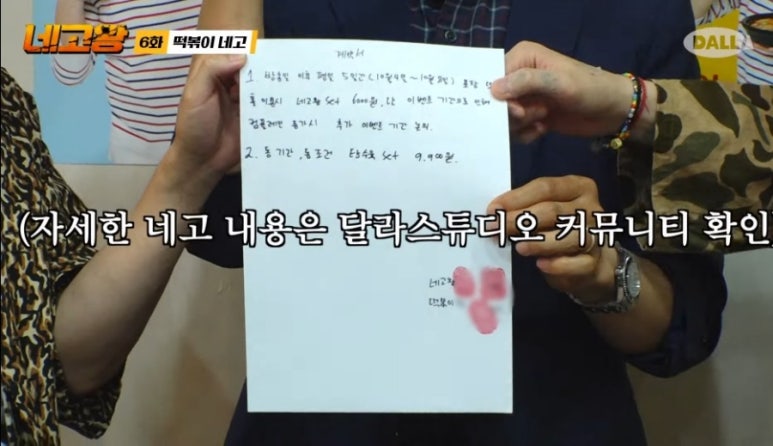 네고왕 6화 떡볶이 네고
DALL
계약서
1. 방송일 이후 평일 5일간(10월4일~10월8일) 포장
이용시 네고왕 set 6000원, 단 이벤트 기간으로 인해
컴플레인 증가시 추가 이벤트 기간 논의.
2. 동기간, 동조건 탕수육 set 9.900원.
(자세한 네고 내용은 달라스튜디오 커뮤니티 확인
네고왕
떡볶이